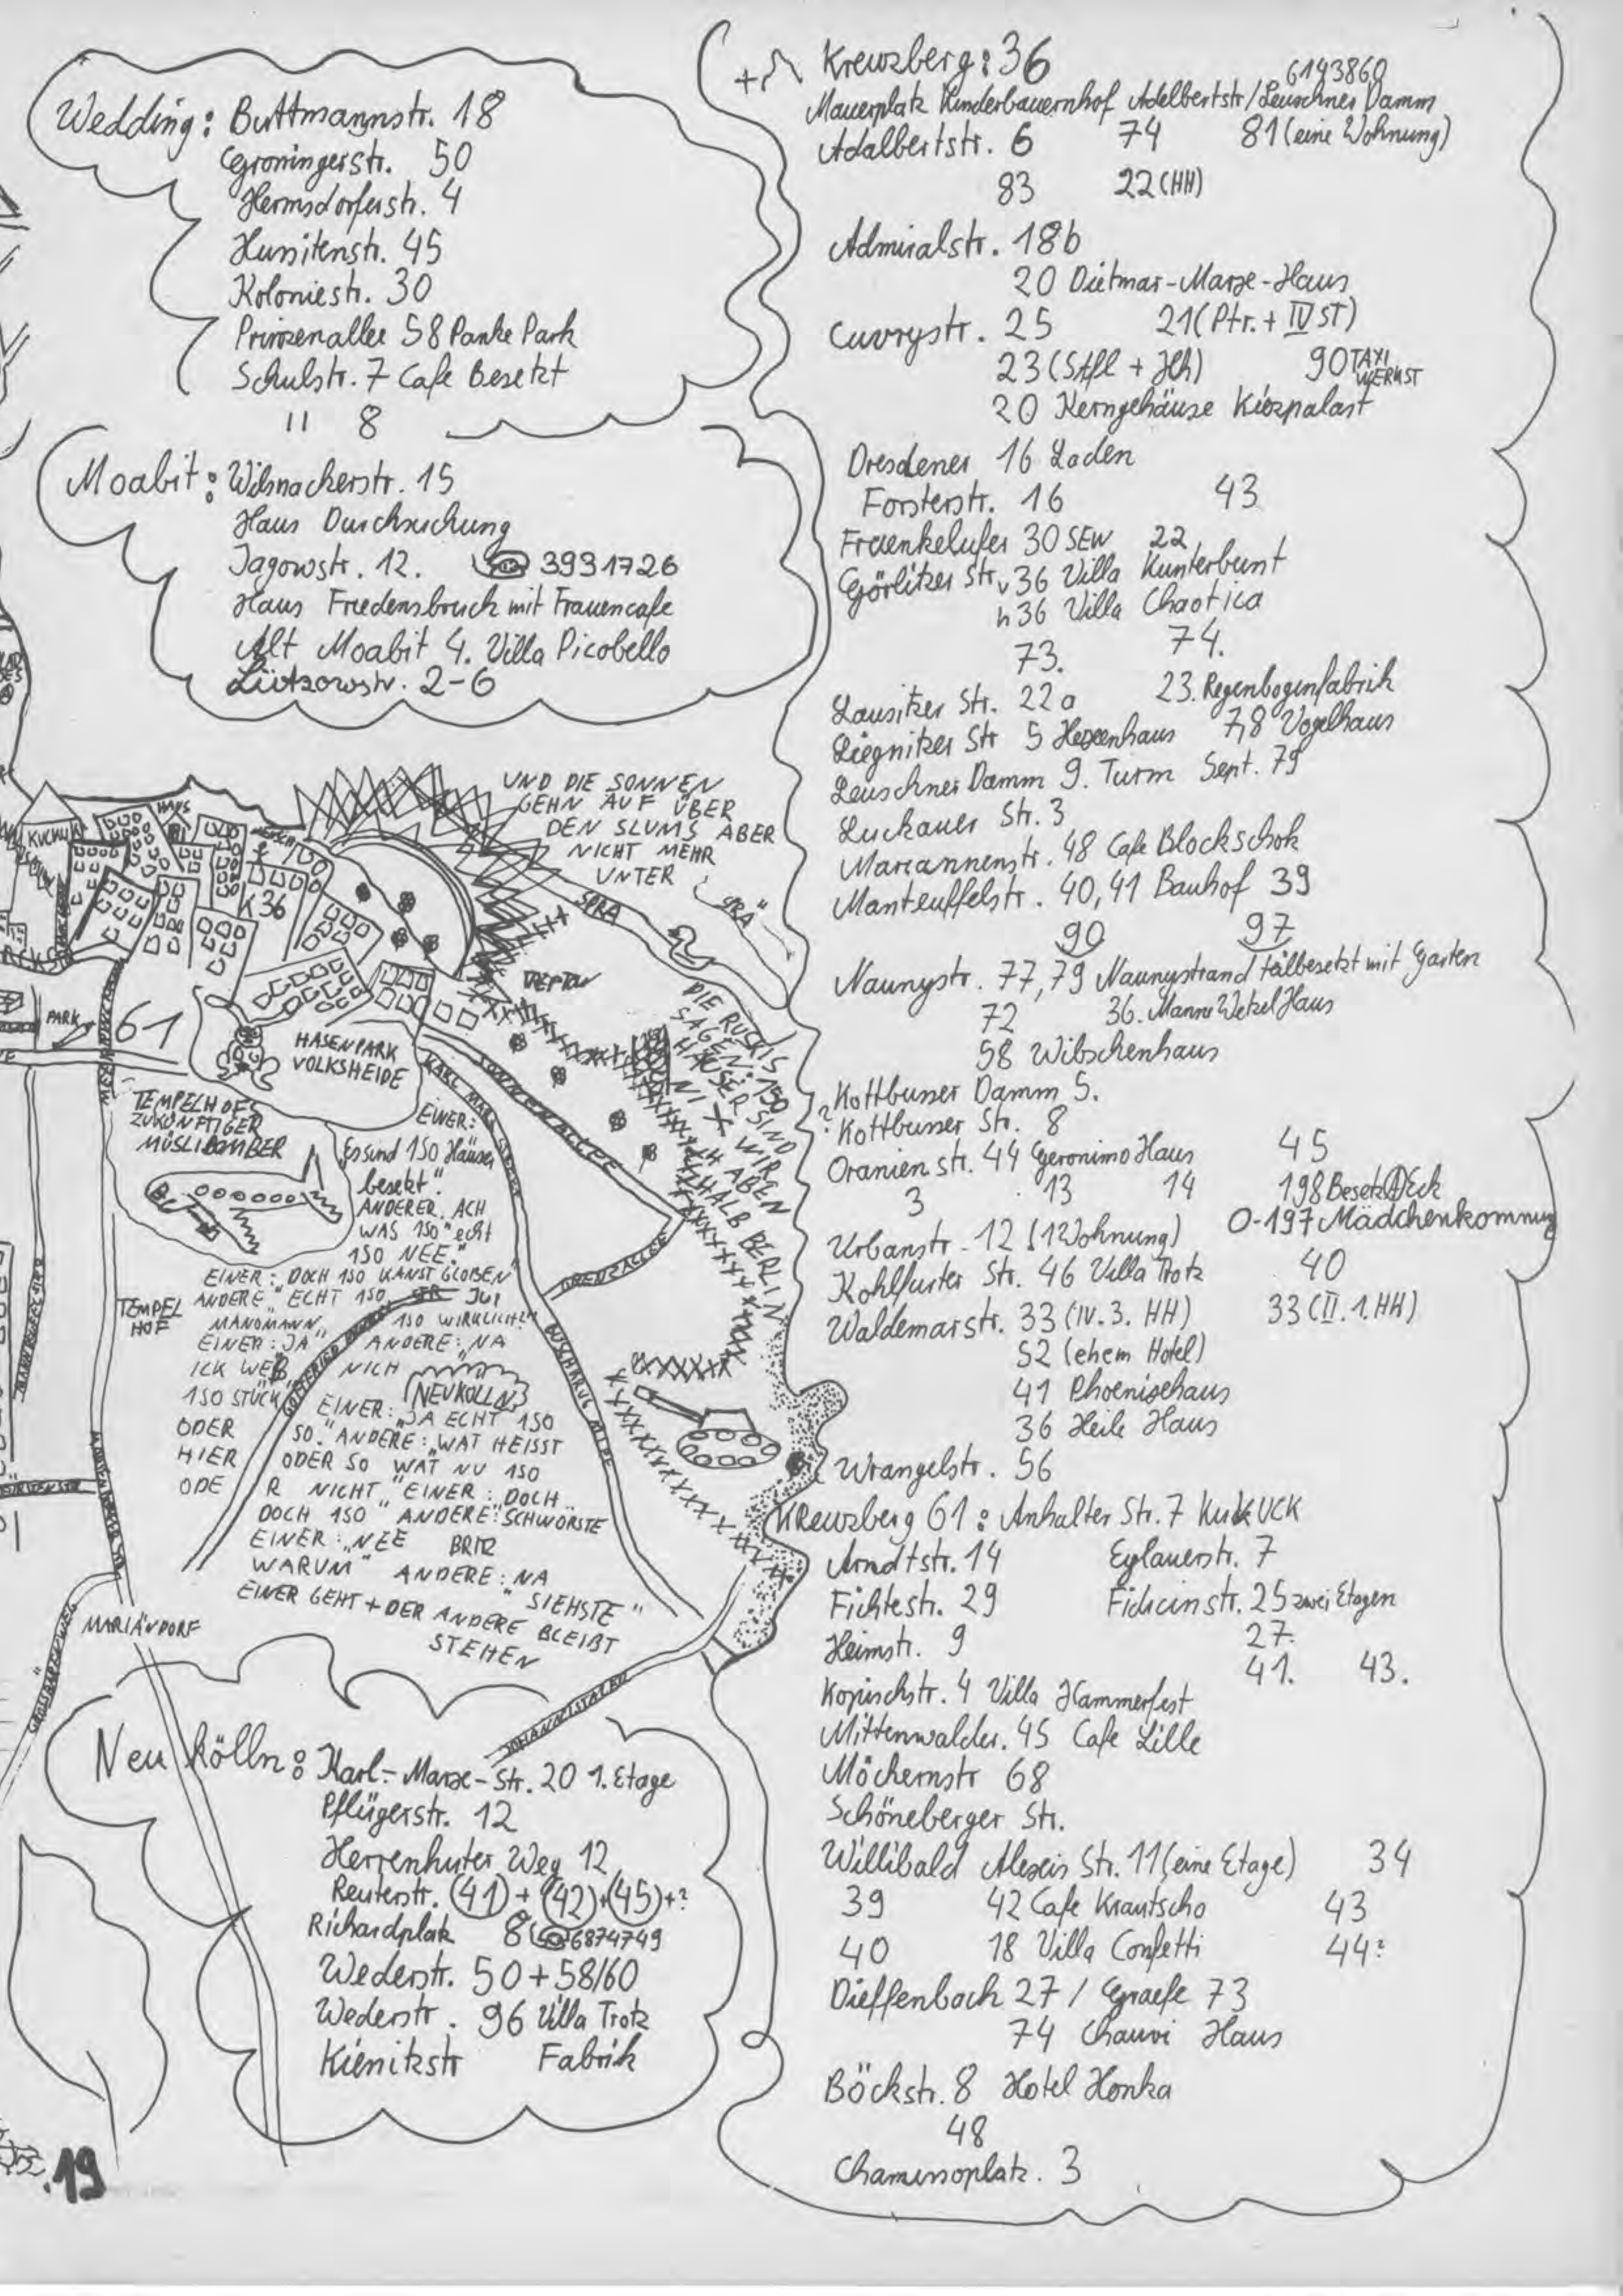 Wedding: Buttmannstr. 18
Groningerstr. 50
Hermsdorferstr. 4
Hussitenstr. 45
Koloniestr. 30
Prinzenallee 58 Panke Park
Schulstr. 7 Cafe Besetzt
" 8
Moabit: Wilsnackerstr. 15
Haus Durchsuchung
Jagowstr. 12. ☎ 3931726
Haus Friedensbruch mit Frauencafe
Alt Moabit 4. Villa Picobello
Lützowstr. 2-6
UND DIE SONNEN
GEHN AUF ÜBER
DEN SLUMS ABER
NICHT MEHR
UNTER
SPRA
SPRÄ
KUCKU
HAUS
K 36
TREPTOW
PARK
61
HASENPARK
VOLKSHEIDE
KARL MARX
SONNENALLEE
DIE RUSSKIS
SAGEN: 150
HÄUSER SIND
NIX WIR
HABEN
HALB BERLIN
TEMPELHOFS
ZUKÜNFTIGER
MÜSLIBOMBER
EINER:
Es sind 150 Häuser
besetzt"
ANDERER, ACH
WAS 150" echt
150 NEE."
EINER: DOCH 150 KANST GLOBEN"
ANDERE" ECHT 150 JUI
MANOMANN, 150 WIRKLICH?"
EINER: JA" ANDERE: „NA
ICK WEß NICH
150 STÜCK
EINER: „JA ECHT 150
ODER SO." ANDERE: „WAT HEISST
HIER ODER SO WAT NU 150
ODE R NICHT" EINER: DOCH
DOCH 150" ANDERE: SCHWÖRSTE
EINER: „NEE
WARUM" ANDERE: NA
SIEHSTE"
EINER GEHT + DER ANDERE BLEIBT
STEHEN
TEMPEL
HOF
NEUKÖLLN
GRENZALLEE
BUSCHKRUG ALLEE
BRITZ
MARIÄNDORF
Neukölln: Karl-Marx-Str. 20 1. Etage
Pflügerstr. 12
Herrenhuter Weg 12
Reuterstr. (41) + (42) + (45) + ?
Richardplatz 8 ☎ 6874749
Wederstr. 50 + 58/60
Wederstr. 96 Villa Trotz
Kienitzstr Fabrik
.19
+ Kreuzberg: 36
6143860
Mauerplatz Kinderbauernhof Adelbertstr/Leuschner Damm
Adalbertstr. 6 74 81 (eine Wohnung)
83 22 (HH)
Admiralstr. 18b
20 Dietmar-Marx-Haus
Cuvrystr. 25 21 (Ptr. + IV ST)
23 (Stfl + Hh) 90 TAXI
WERKST
20 Kerngehäuse Kiezpalast
Dresdener 16 Laden
Forsterstr. 16 43
Fraenkelufer 30 SEW 22
Görlitzer Str. v 36 Villa Kunterbunt
h 36 Villa Chaotica
73. 74.
Lausitzer Str. 22a 23. Regenbogenfabrik
Liegnitzer Str 5 Hexenhaus 7,8 Vogelhaus
Leuschner Damm 9. Turm Sept. 79
Luckauer Str. 3
Mariannenstr. 48 Cafe Blockschok
Manteuffelstr. 40, 41 Bauhof 39
90 97
Naunystr. 77, 79 Naunystrand tälbesetzt mit Garten
72 36. Manne Wetzel Haus
58 Wibschenhaus
? Kottbusser Damm 5.
? Kottbusser Str. 8
Oranienstr. 44 Geronimo Haus 45
3 13 14 198 Besetz(A)Eck
Urbanstr. 12 (1 Wohnung) O-197 Mädchenkommug
Kohlfurter Str. 46 Villa Trotz 40
Waldemarstr. 33 (IV. 3. HH) 33 (II. 1. HH)
52 (ehem Hotel)
41 Phoenixhaus
36 Heile Haus
Wrangelstr. 56
Kreuzberg 61: Anhalter Str. 7 KuKUCK
Arndtstr. 14 Eylauerstr. 7
Fichtestr. 29 Fidicinstr. 25 zwei Etagen
Heimstr. 9 27.
41. 43.
Kopischstr. 4 Villa Hammerfest
Mittenwalder. 45 Cafe Lille
Möckernstr 68
Schöneberger Str.
Willibald Alexis Str. 11 (eine Etage) 34
39 42 Cafe Krautscho 43
40 18 Villa Confetti 44?
Dieffenbach 27 / Graefe 73
74 Chauvi Haus
Böckstr. 8 Hotel Honka
48
Chamissoplatz. 3